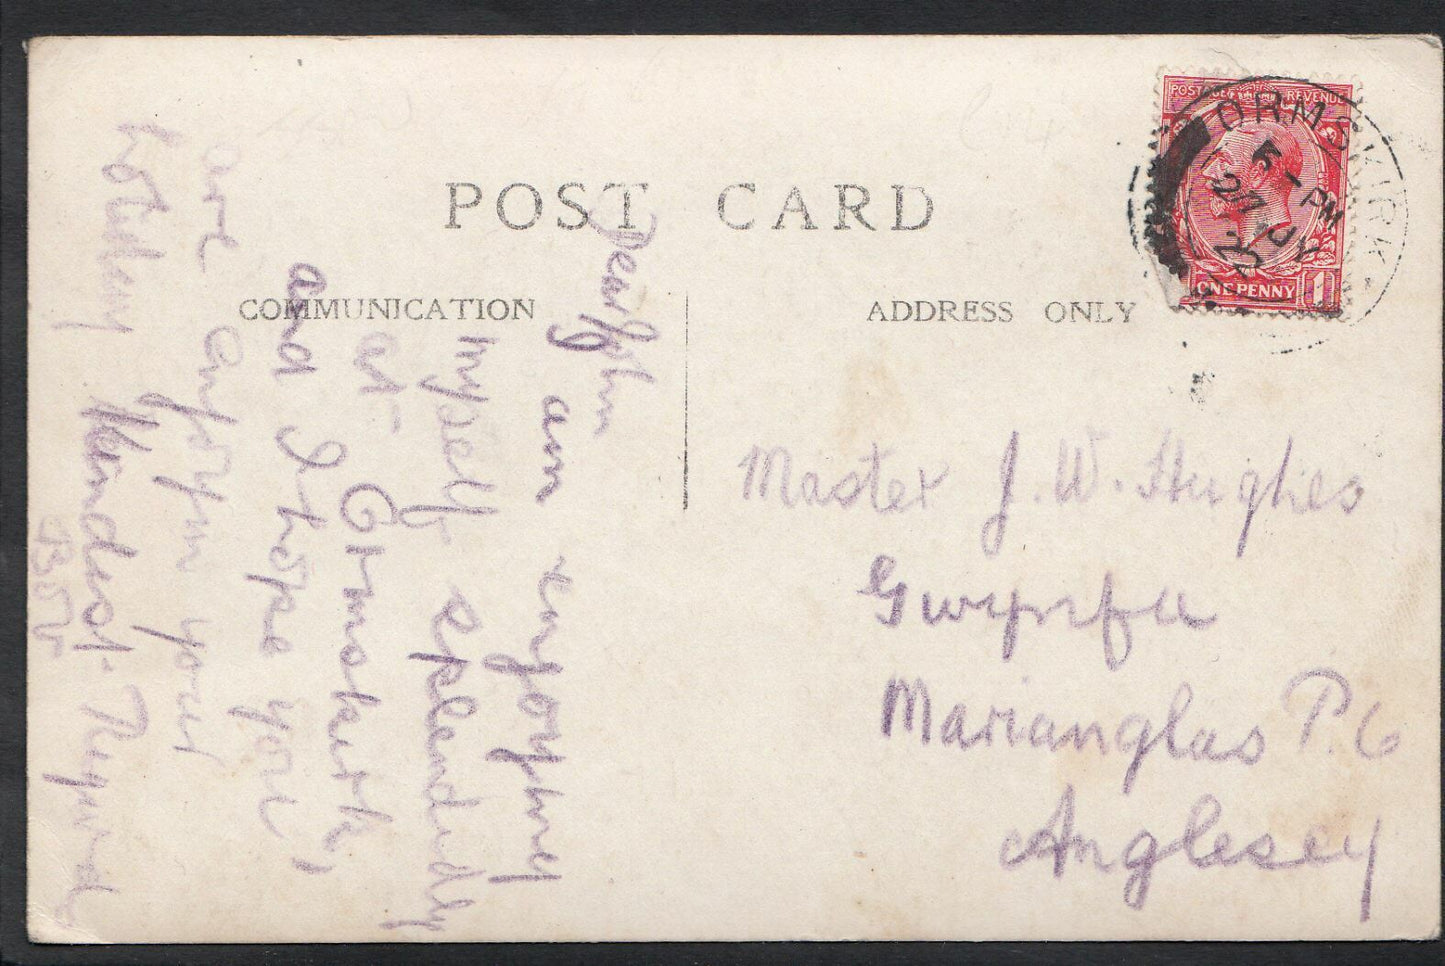 POST CARD
COMMUNICATION
ADDRESS ONLY
POSTAGE REVENUE
ONE PENNY 1
ORMSKIRK
5 - PM
27 JY
Dear John
am enjoying
myself splendidly
at Ormskirk,
and I hope you
are enjoyin your
holiday
Kindest Regards
Master J. W. Hughes
Gwynfa
Marianglas P. O
Anglesey